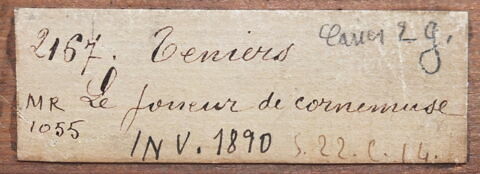 2167. Teniers
Le Joueur de cornemuse
MR
1055
INV. 1890 S. 22. C. 14.